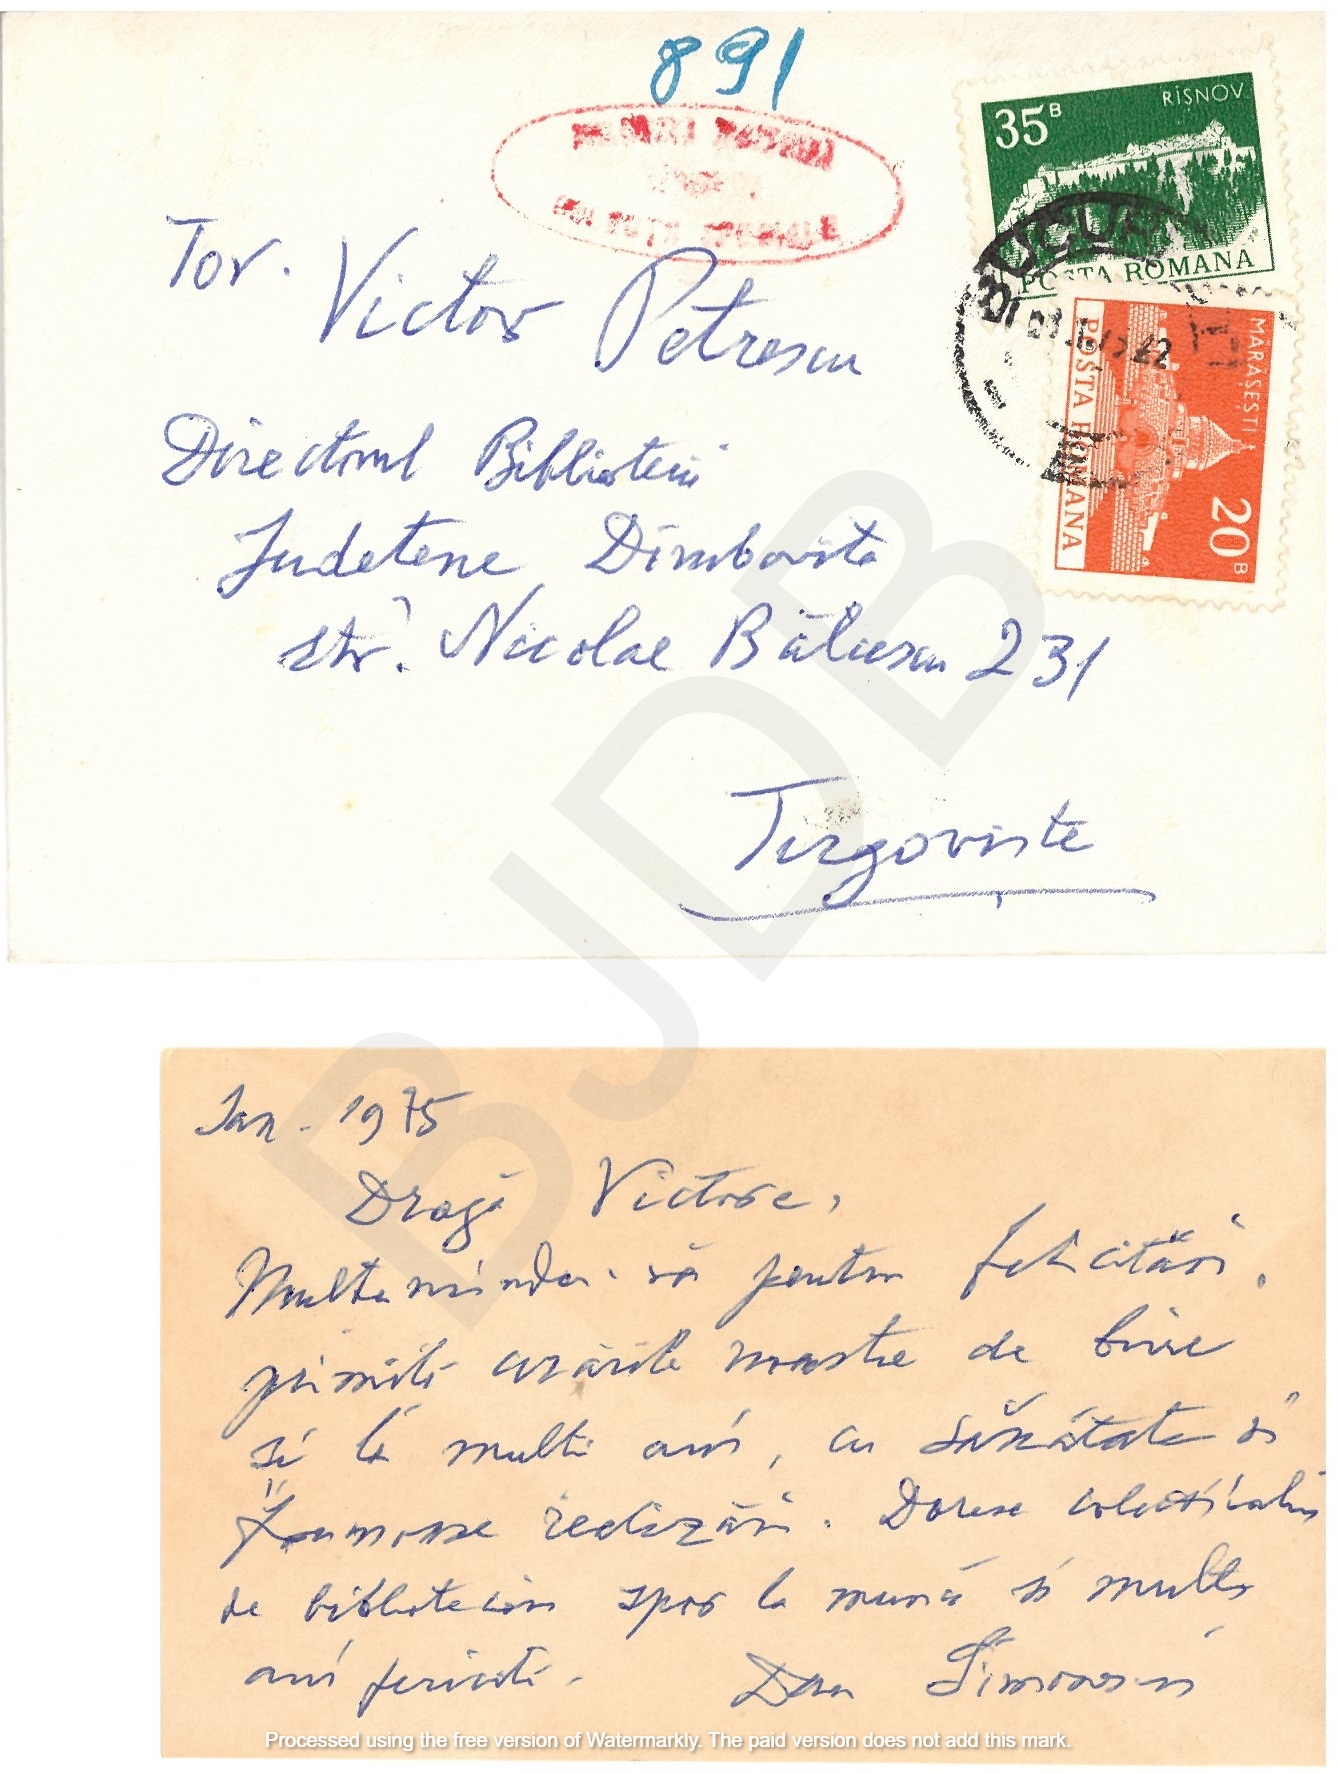 891
RÎŞNOV
35B
POŞTA ROMANA
MĂRĂŞEŞTI
POŞTA ROMANA
20B
BUCUR
Tov. Victor Petrescu
Directorul Bibliotecii
Judetene Dîmbovita
str. Nicolae Bălcescu 231
Tirgoviste
BJDB
Ian. 1975
Dragă Victore,
Multumindu-vă pentru felicitări,
primiti urările noastre de bine
si la multi ani, cu sănătate si
frumoase realizări. Doresc colectivului
de bibliotecari spor la muncă si multi
ani fericiti. Dan Simonescu
Processed using the free version of Watermarkly. The paid version does not add this mark.